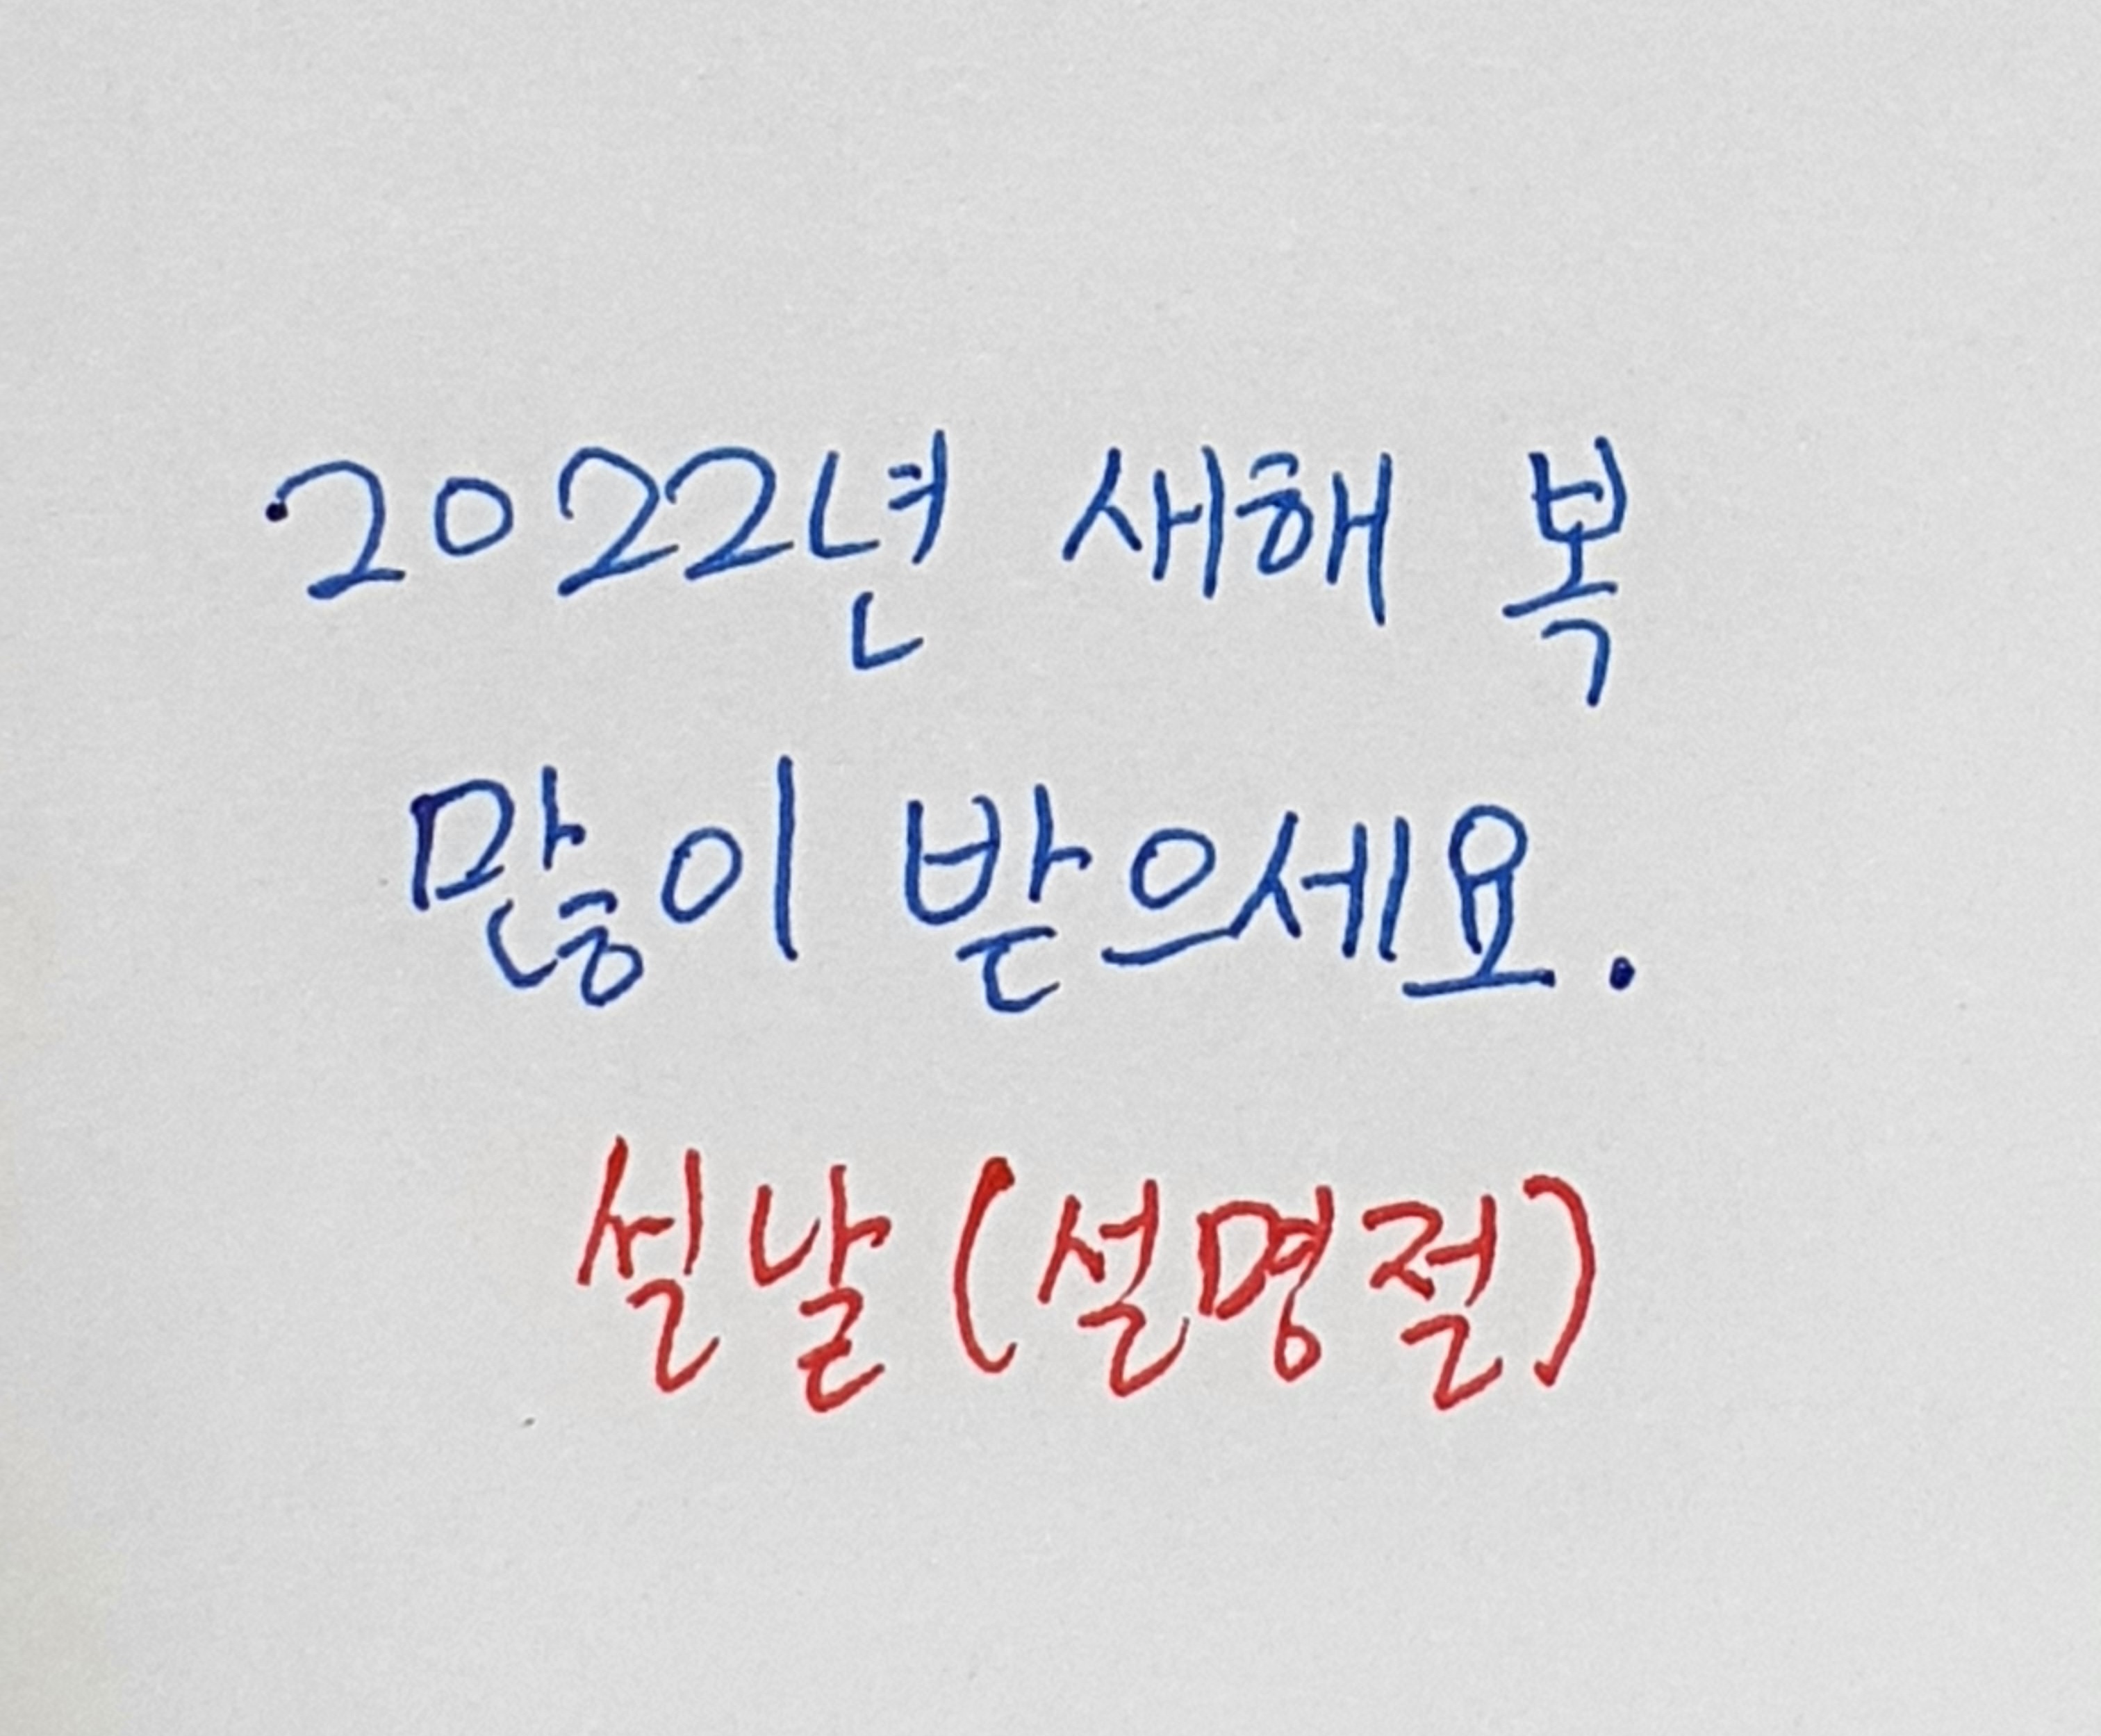 2022년 새해 복
많이 받으세요.
설날(설명절)